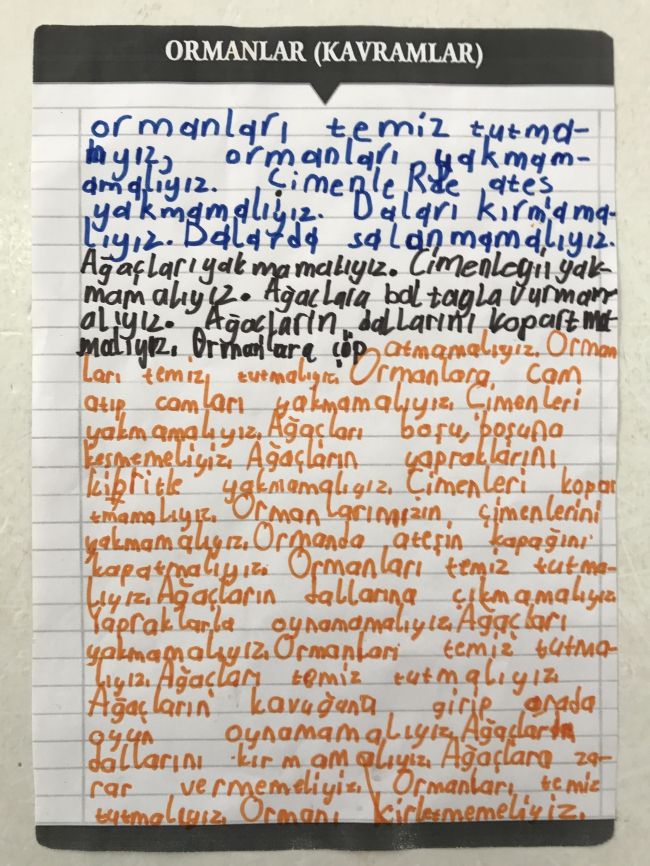 ORMANLAR (KAVRAMLAR)
ormanları temiz tutma-
lıyız, ormanları yakmam-
amalıyız. ÇimenleRde ates
yakmamalıyız. Daları kırmama-
lıyız. Dalarda salanmamalıyız.
Ağaçları yakmamalıyız. Cimenleri yak-
mamalıyız. Ağaçlara baltayla vurmam-
alıyız. Ağaçların dallarını kopartma
malıyız. Ormanlara çöp atmamalıyız. Orman
ları temiz tutmalıyız. Ormanlara cam
atıp camları yakmamalıyız. Çimenleri
yakmamalıyız. Ağaçları boşu, boşuna
kesmemeliyiz. Ağaçların yapraklarını
kibritle yakmamalıyız. Çimenleri kopar
tmamalıyız. Ormanlarımızın çimenlerini
yakmamalıyız. Ormanda ateşin kapağını
kapatmalıyız. Ormanları temiz tutma-
lıyız. Ağaçların dallarına çıkmamalıyız
Yapraklarla oynamamalıyız. Ağaçları
yakmamalıyız. Ormanları temiz tutma-
lıyız. Ağaçları temiz tutmalıyız
Ağaçların kavuğuna girip orada
oyun oynamamalıyız. Ağaçların
dallarını kırmamalıyız. Ağaçlara za-
rar vermemeliyiz. Ormanları temiz
tutmalıyız. Ormanı kirletmemeliyiz.